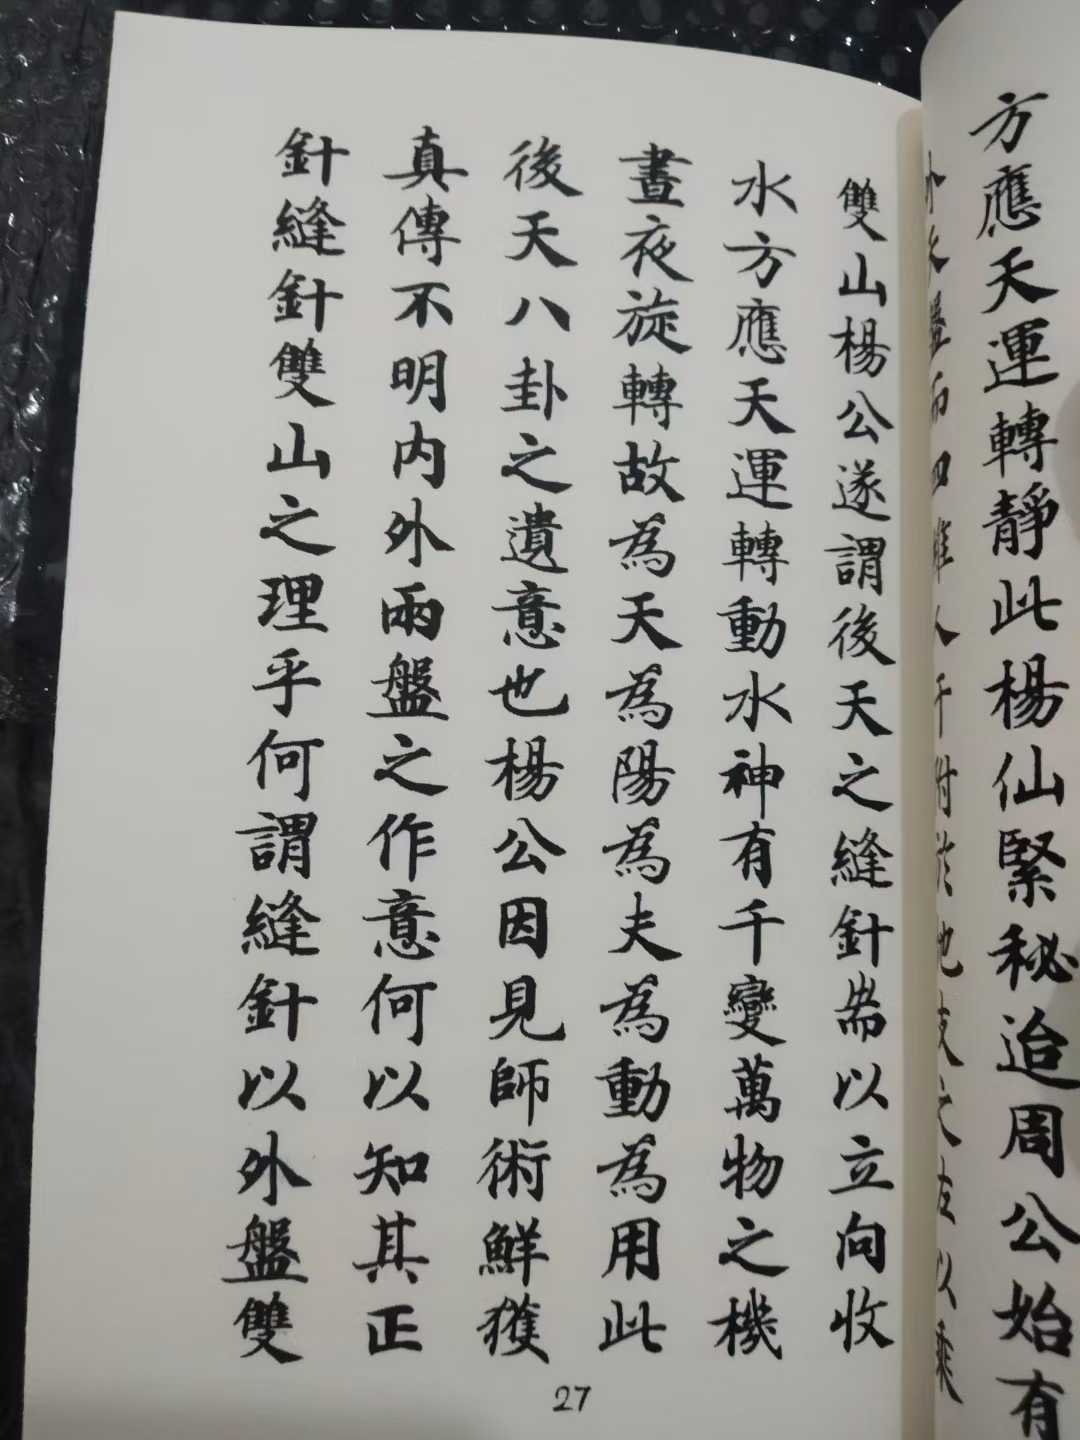 方應天運轉靜此楊仙緊秘迨周公始有
盤而四維八干附於地支之左以乘
雙山楊公遂謂後天之縫針耑以立向收
水方應天運轉動水神有千變萬物之機
晝夜旋轉故為天為陽為夫為動為用此
後天八卦之遺意也楊公因見師術鮮獲
真傳不明內外兩盤之作意何以知其正
針縫針雙山之理乎何謂縫針以外盤雙
27